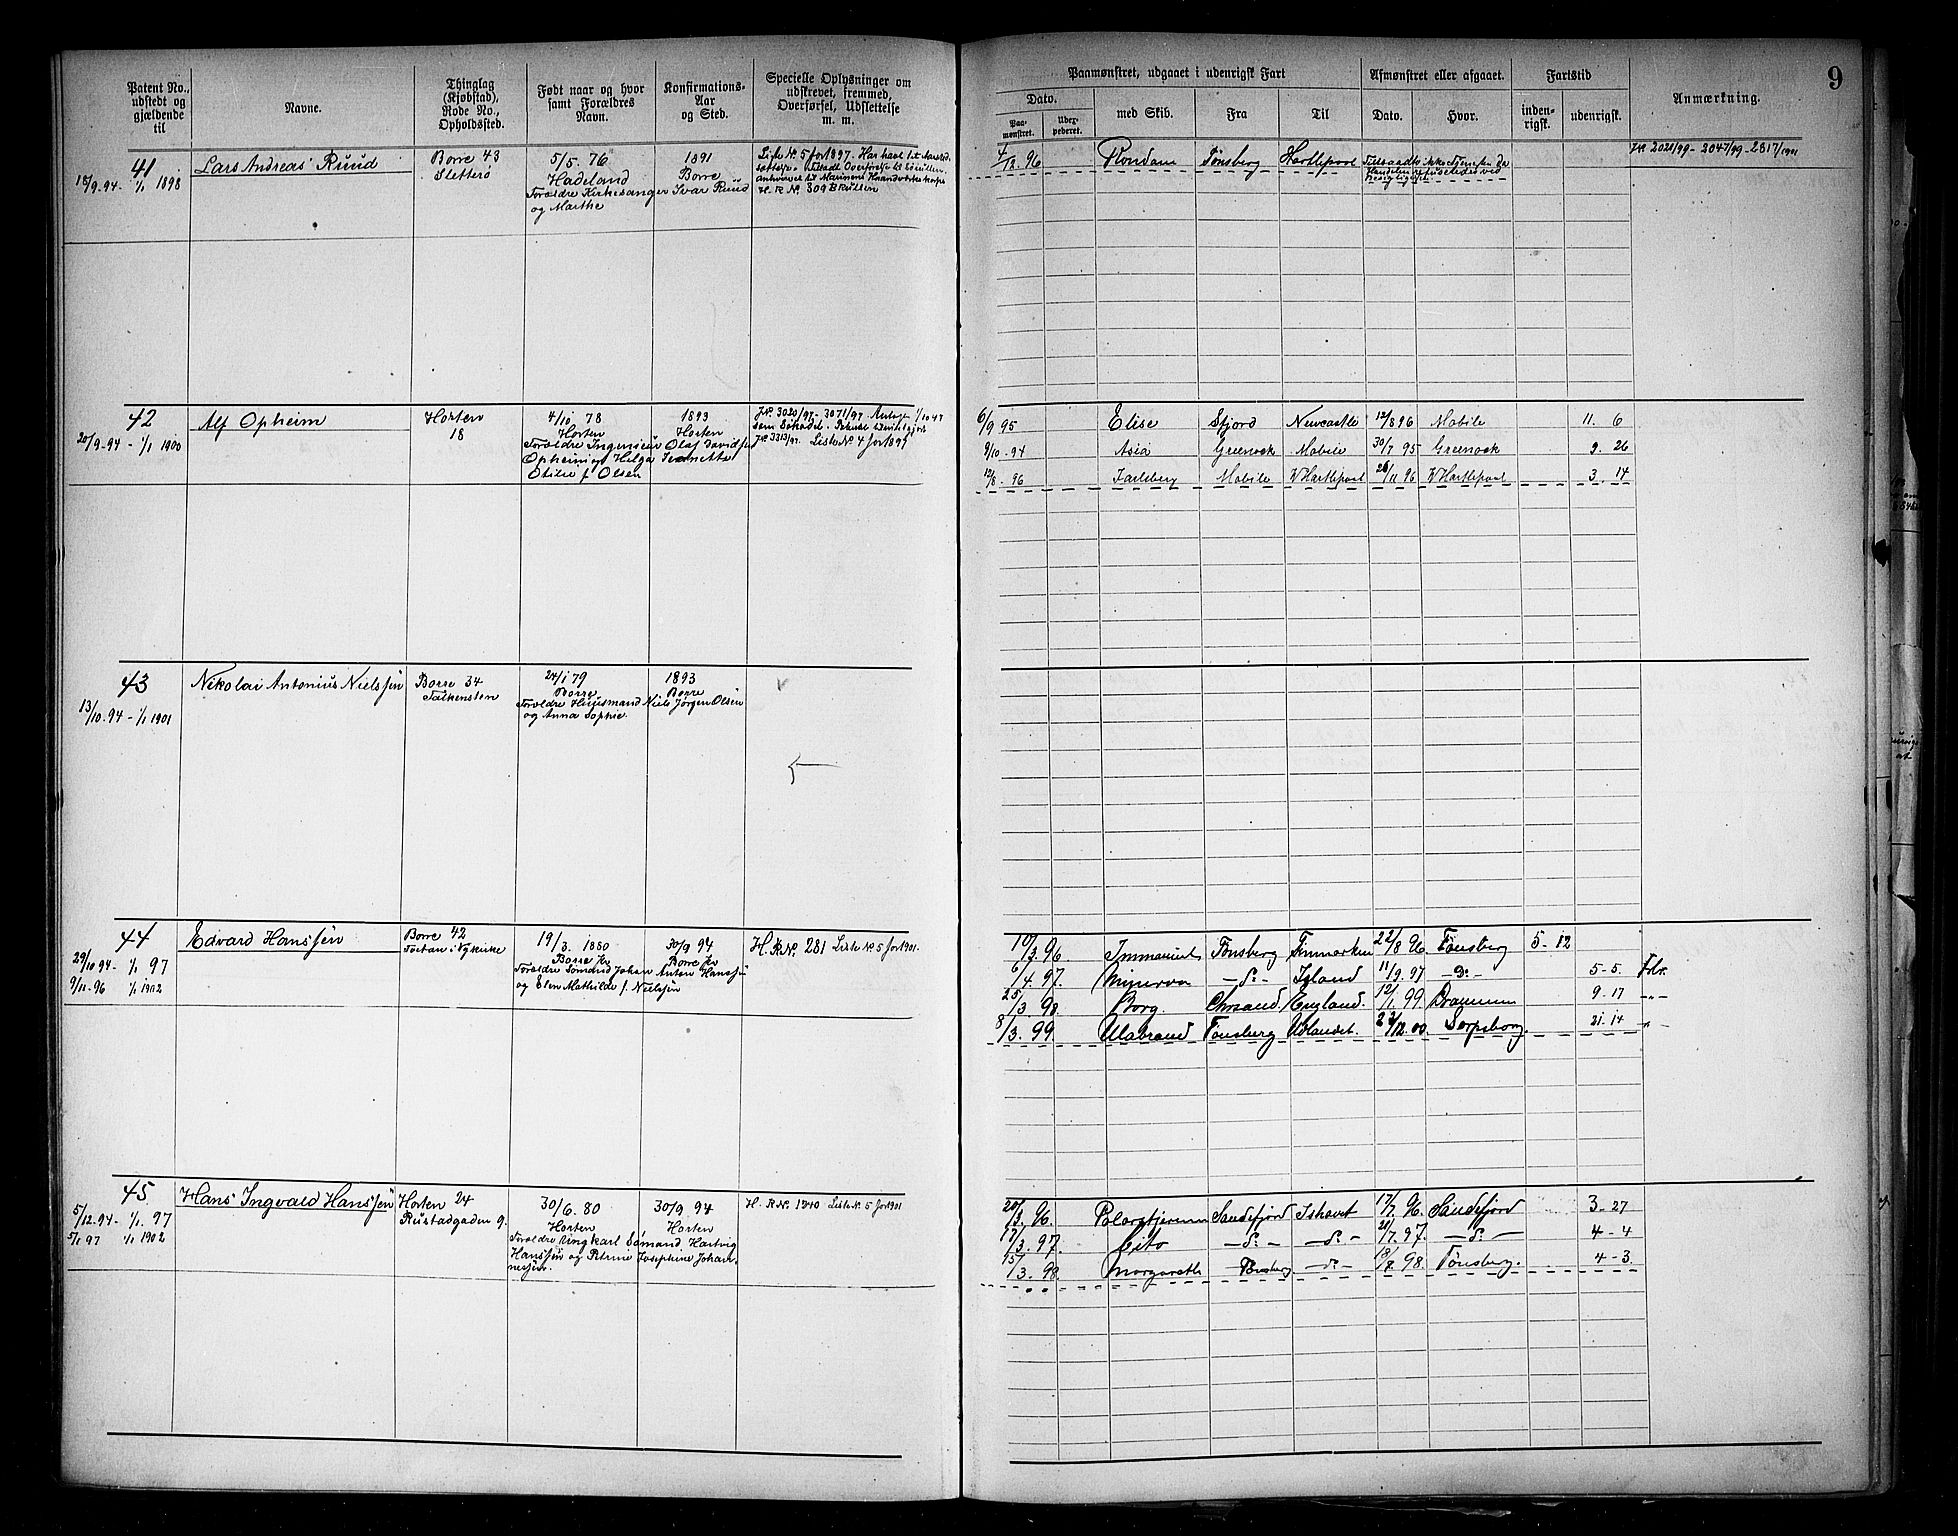 9
Patent No.,
udstedt og
gjældende
til
Navne.
Thinglag
(Kjøbstad),
Rode No.,
Opholdssted.
Født naar og hvor
samt Forældres
Navn.
Konfirmations-
Aar
og Sted.
Specielle Oplysninger om
udskrevet, fremmed,
Overførsel, Udslettelse
m. m.
Paamønstret, udgaaet i udenrigsk Fart
Dato.
Paa-
mønstret.
Uder-
pederet.
med Skib.
Fra
Til
Afmønstret eller afgaaet.
Dato.
Hvor.
Fartstid
inden-
rigsk.
udenrigsk.
Anmærkning.
41
18/9.94- 1/1 1898
Lars Andreas Ruud
Borre 43
Sletterø
5/5. 76
Hadeland
Forældre Kirkesanger Ivar Ruud
og Marthe
1891
Borre
Liste № 5 for 1897.
H. R № 309 B Rullen
4/12 96
Rondane
Tønsberg
Hartlepool
J№ 2021/99 - 2047/99 - 2817/1901
42
20/9.94 - 1/1 1900
Alf Opheim
Horten
18
4/10 78
Horten
Forældre Ingeniør Olaf Davidsen
Opheim og Helga Jeanette
Otilie f. Olsen
1893
Horten
J№ 3020/97 - 3071/97
Liste № 4 for 1897
6/9 95
Elise
Sfjord
Newcastle
12/8 96
Mobile
11. 6
9/10. 94
Asia
Greenock
Mobile
30/7 95
Greenock
9. 26
12/8. 96
Jarlsberg
Mobile
W Hartlepool
26/11 96
W Hartlepool
3. 14
43
13/10.94 - 1/1 1901
Nikolai Antonius Nielssen
Borre 34
Falkensten
24/1 79
Borre
Forældre Huusmand Niels Jørgen Olsen
og Anna Sophie
1893
Borre
44
29/10 94 - 1/1 97
9/11.96 1/1 1902
Edvard Hanssen
Borre 42
Toftan i Nykirke
19/3. 1880
Borre
Forældre Sømand Johan Anton Hanssen
og Elen Mathilde f. Nielsen
30/9 94
Borre
H. R.№. 281 Liste № 5 for 1901.
10/3.96.
Immanuel
Tønsberg
Finmarken
22/8 96.
Tønsberg
5 - 12
6/4. 97.
Minerva
- d: -
Island
11/9. 97
- D: -
5 - 5.
25/3 98.
Borg.
Chrsand
England.
12/1 99
Drammen
9. 17
8/3. 99.
Ulabrand
Tønsberg
Udlandet.
22/12.00.
Sarpsborg.
21. 14
45
5/12.94 - 1/1. 97
5/1 97 1/1 1902
Hans Ingvald Hanssen
Horten 24
Rustadgaden 9.
30/6. 80
Horten
Forældre Ungkarl Edmand Hartvig
Hanssen og Petrine Josephine Johan-
nesen.
30/9 94
Horten
H. R№. 1240 Liste № 5 for 1901
20/3. 96.
Polarstjernen
Sandefjord
Ishavet
17/7. 96.
Sandefjord
3 - 27
17/3. 97.
Cito
- d: -
- d: -
21/7. 97.
- d: -
4 - 4
15/3. 98.
Margarethe
Tønsberg
- d: -
18/7 98.
Tønsberg.
4 - 3.